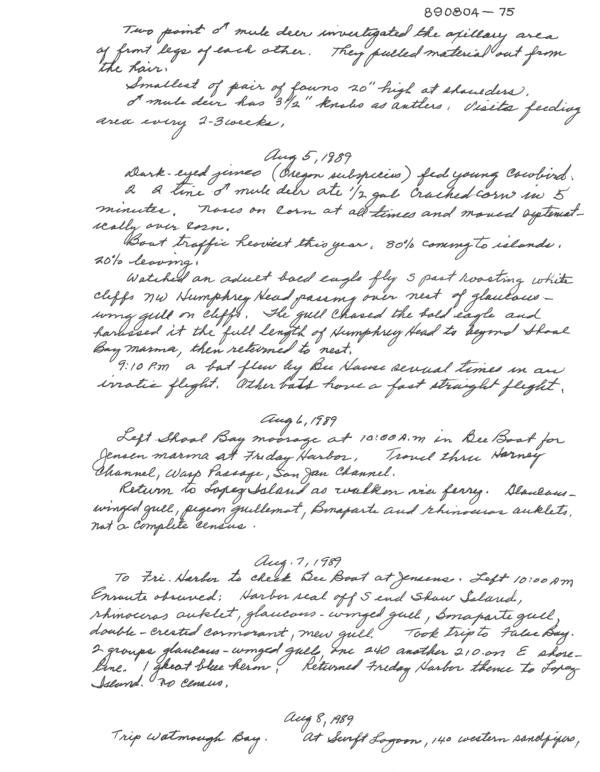 890804-75
Two point ♂ mule deer investigated the axillary area
of front legs of each other. They pulled material out from
the hair.
Smallest of pair of fawns 20" high at shoulders.
♂ mule deer has 3½" knobs as antlers. Visits feeding
area every 2-3 weeks.
Aug 5, 1989
Dark-eyed junco (Oregon subspecies) fed young Cowbird.
2 2 tine ♂ mule deer ate ½ gal Cracked corn in 5
minutes. Noses on corn at all times and moved systemat-
ically over corn.
Boat traffic heaviest this year. 80% coming to islands.
20% leaving.
Watched an adult bald eagle fly S past roosting white
cliffs NW Humphrey Head passing over nest of glaucous-
wing gull on cliffs. The gull chased the bald eagle and
harassed it the full length of Humphrey Head to beyond Shoal
Bay marina, then returned to nest.
9:10 P.M a bat flew by Bee House several times in an
irratic flight. Other bats have a fast straight flight.
Aug 6, 1989
Left Shoal Bay moorage at 10:00 A.M in Bee Boat for
Jensen marina at Friday Harbor. Travel thru Harney
Channel, Wasp Passage, San Jan Channel.
Return to Lopez Island as walk on via ferry. Glaucous-
winged gull, pigeon guillemot, Bonaparte and rhinoceros auklets.
Not a complete census.
Aug. 7, 1989
To Fri. Harbor to check Bee Boat at Jensens. Left 10:00 AM
Enroute observed: Harbor seal off S end Shaw Island,
rhinoceros auklet, glaucous-winged gull, Bonaparte gull,
double-crested cormorant, mew gull. Took trip to False Bay.
2 groups glaucous-winged gull, one 240 another 210 on E shore-
line. 1 great blue heron. Returned Friday Harbor thence to Lopez
Island. No census.
Aug 8, 1989
Trip Watmough Bay. At Swift Lagoon, 140 western sandpipers,